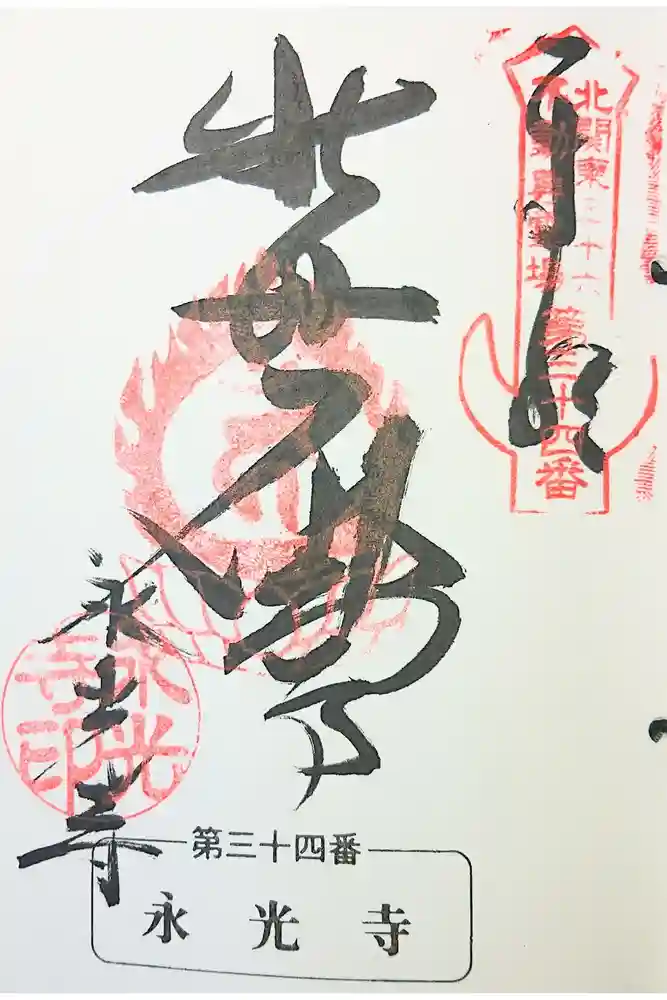 北関東三十六
不動尊霊場
第三十四番
不動
永光寺
永光
寺印
第三十四番
永光寺